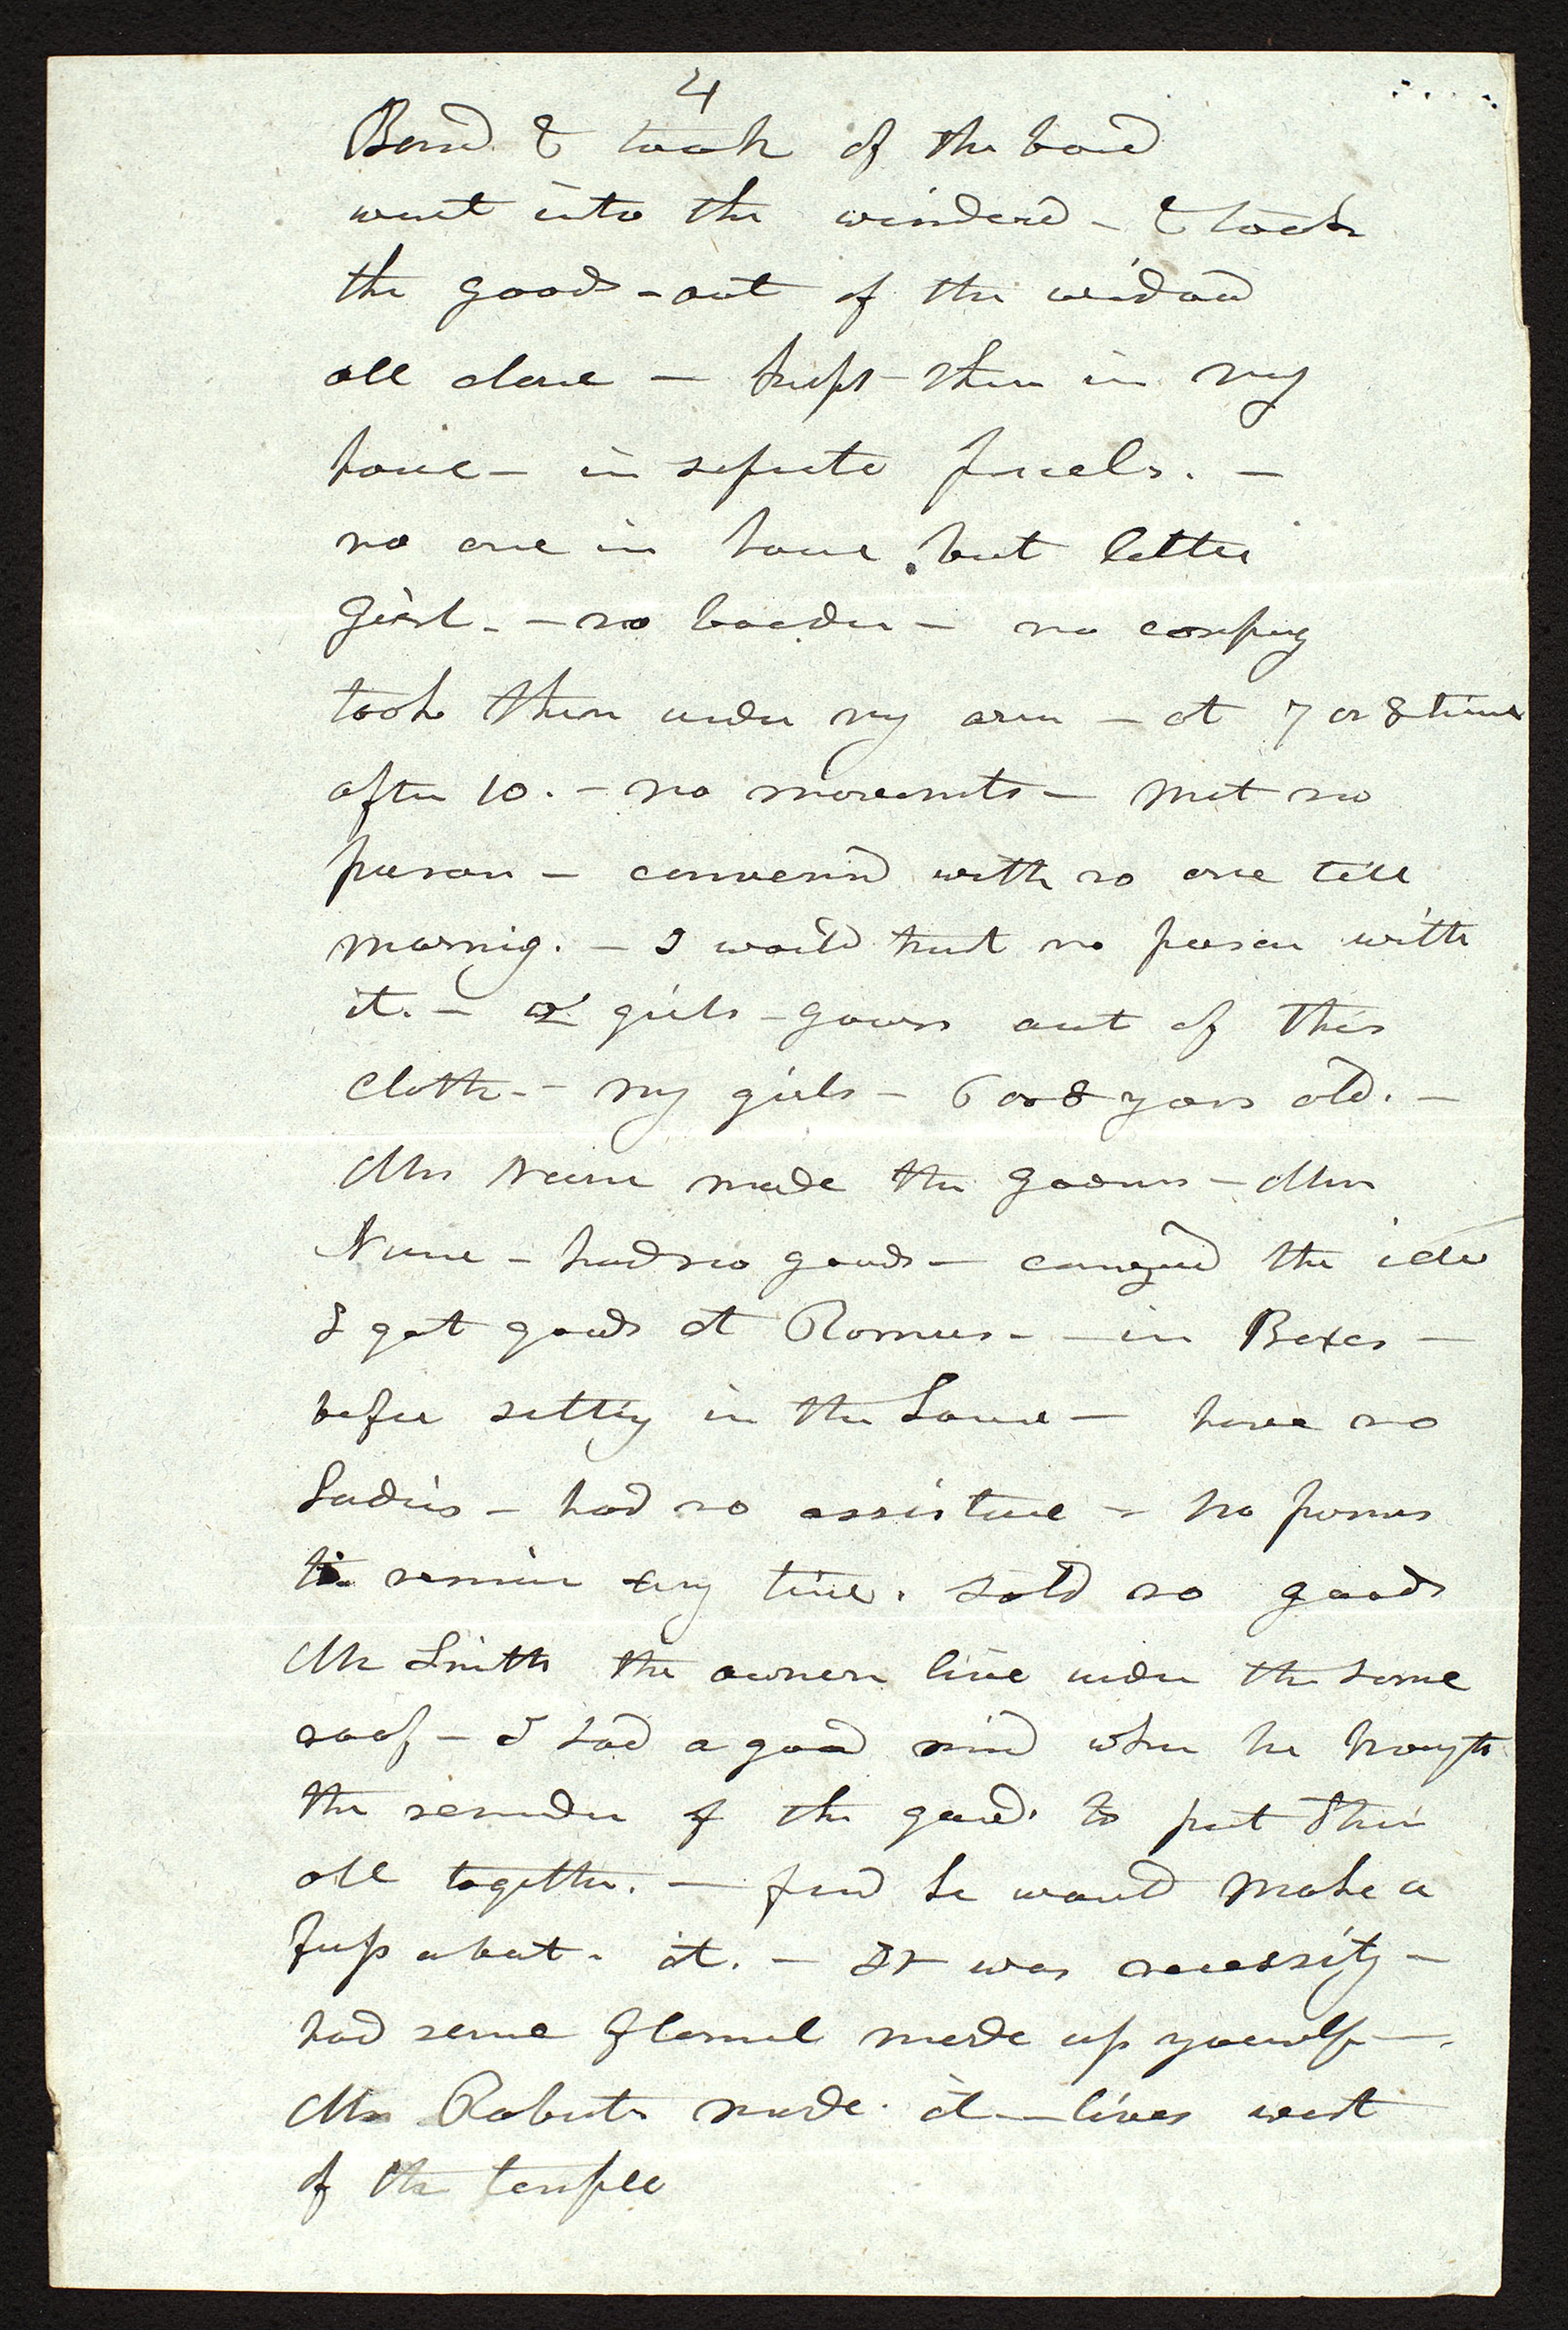 4
Bord & took of the bord
went into the winderd - & took
the goods - out of the widow
all alone - kept them in my
house - in seprate parcels. -
no one in house but little
girl. - no boarder - no compay
took them under my arm - at 7 or 8 times
after 10. - no movements - met no
person - conversed with no one till
mornig. - I would trust no person with
it. - 2 girls - gowns out of this
cloth. - my girls - 6 or 8 years old. -
Mrs made the gowns - Mrs
- had no goods - the idea
I got goods at - in Boxes -
before settig in the House - have no
Ladies - had no assistance - no persons
to remain any time. sold no goods
Mr Smith the owner live under the same
roof - I had a good mind when he brought
the remainder of the goods to put them
all together. - he would make a
fuss about it. - It was necessity -
had some flannel made up yourself -
Mrs Roberts made it - lives west
of the temple